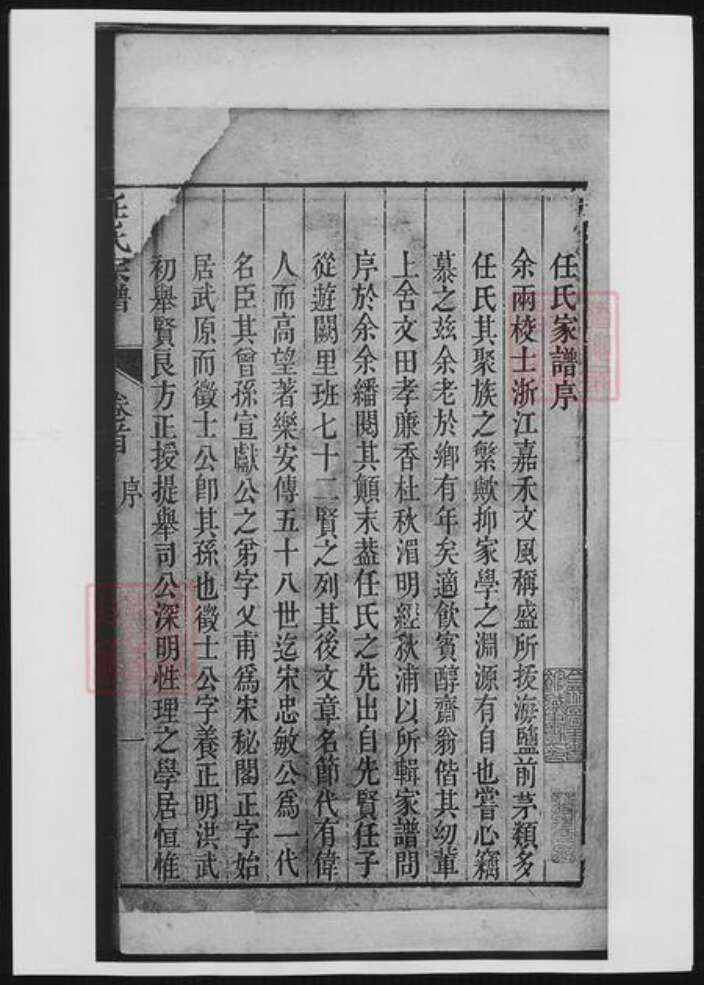 任氏家譜序
余兩梭士浙江嘉禾文風稱盛所拔海鹽前茅類多
任氏其聚族之繁歟抑家學之淵源有自也嘗心竊
慕之玆余老於鄉有年矣適飲賓醇齋翁偕其幼輩
上舍文田孝廉香杜秋湄明經秋浦以所輯家譜問
序於余余繙閱其顛末葢任氏之先出自先賢任子
從遊闕里班七十二賢之列其後文章名節代有偉
人而高望著樂安傳五十八世迄宋忠敏公爲一代
名臣其曾孫宣獻公之弟字乂甫爲宋秘閣正字始
居武原而徵士公卽其孫也徵士公字養正明洪武
初舉賢良方正授提舉司公深明性理之學居恒惟
任氏宗譜
卷首
序
一